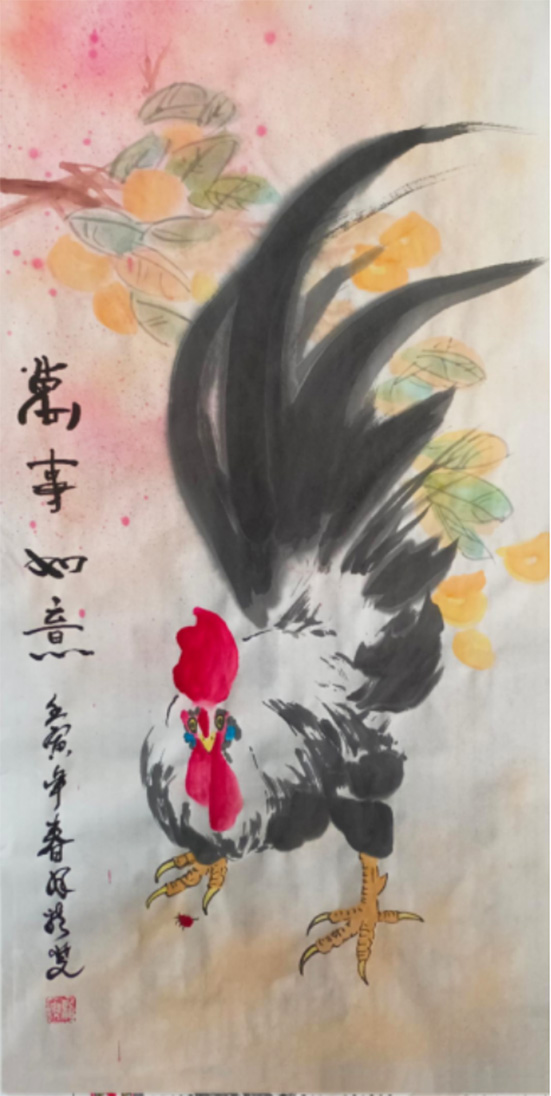 萬事如意
壬寅年春